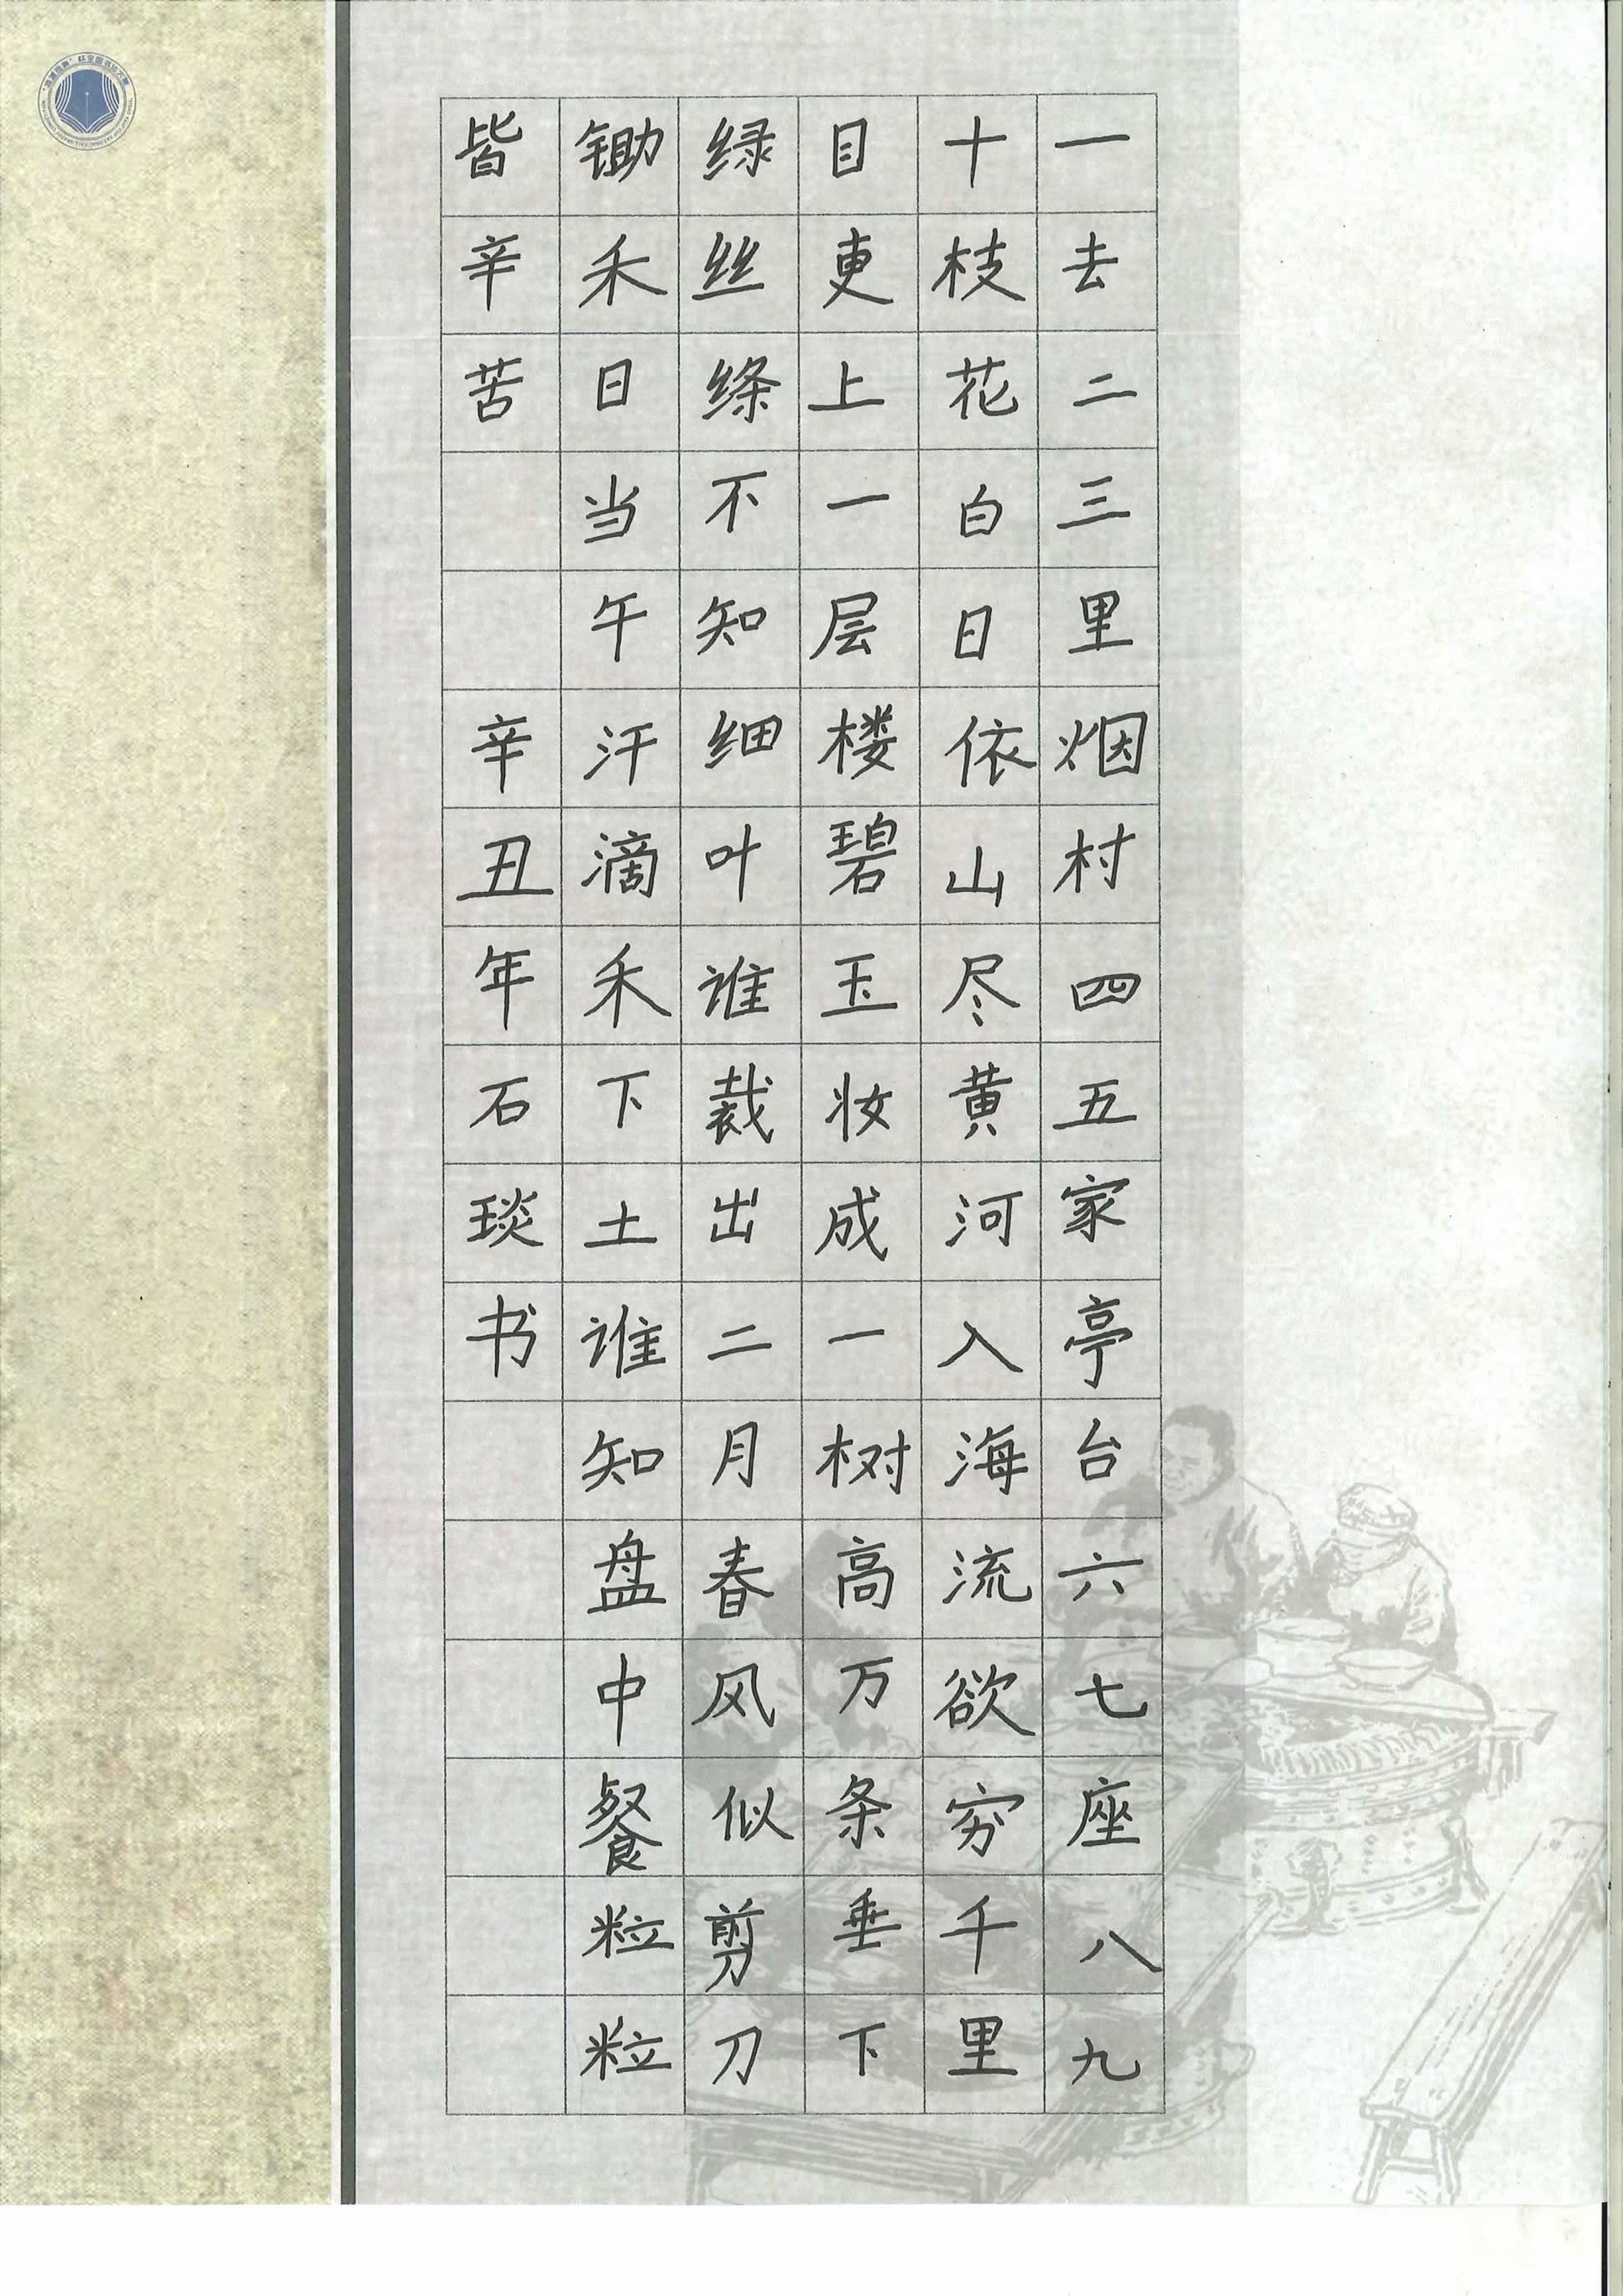 一去二三里烟村四五家亭台六七座八九
十枝花白日依山尽黄河入海流欲穷千里
目更上一层楼碧玉妆成一树高万条垂下
绿丝绦不知细叶谁裁出二月春风似剪刀
锄禾日当午汗滴禾下土谁知盘中餐粒粒
皆辛苦 辛丑年石琰书